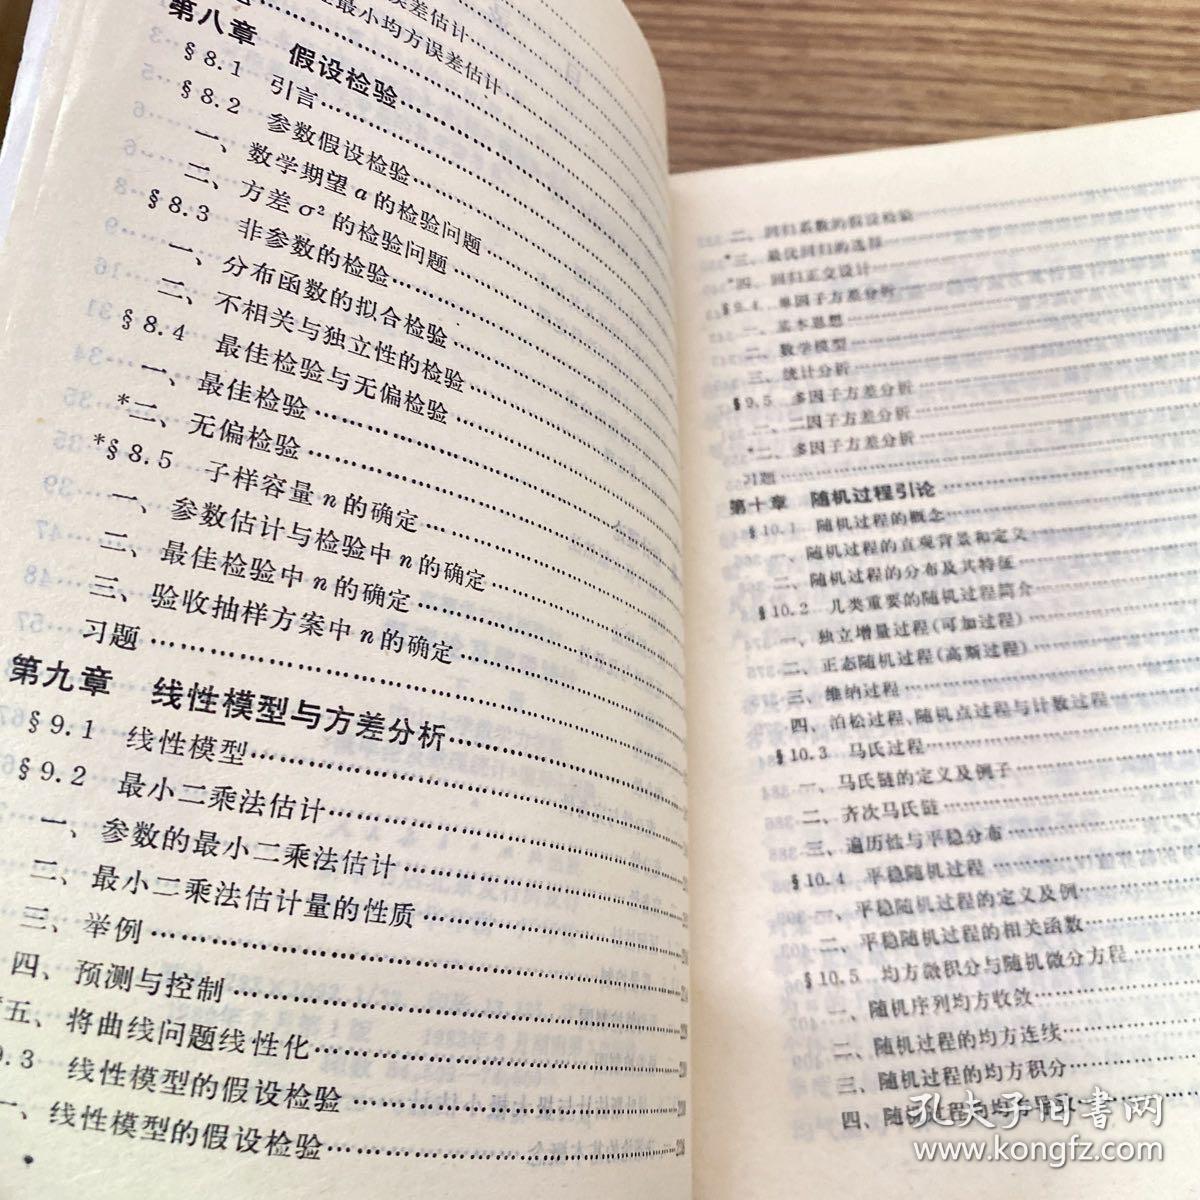 误差估计
最小均方误差估计
第八章 假设检验
§8.1 引言
§8.2 参数假设检验
一、数学期望a的检验问题
二、方差σ²的检验问题
§8.3 非参数的检验
一、分布函数的拟合检验
二、不相关与独立性的检验
§8.4 最佳检验与无偏检验
一、最佳检验
*二、无偏检验
*§8.5 子样容量n的确定
一、参数估计与检验中n的确定
二、最佳检验中n的确定
三、验收抽样方案中n的确定
习题
第九章 线性模型与方差分析
§9.1 线性模型
§9.2 最小二乘法估计
一、参数的最小二乘法估计
二、最小二乘法估计量的性质
三、举例
四、预测与控制
五、将曲线问题线性化
9.3 线性模型的假设检验
一、线性模型的假设检验
二、回归系数的假设检验
*三、最优回归的选择
*四、回归正交设计
§9.4 单因子方差分析
一、基本思想
二、数学模型
三、统计分析
§9.5 多因子方差分析
一、二因子方差分析
*二、多因子方差分析
习题
第十章 随机过程引论
§10.1 随机过程的概念
一、随机过程的直观背景和定义
二、随机过程的分布及其特征
§10.2 几类重要的随机过程简介
一、独立增量过程(可加过程)
二、正态随机过程(高斯过程)
三、维纳过程
四、泊松过程、随机点过程与计数过程
§10.3 马氏过程
一、马氏链的定义及例子
二、齐次马氏链
三、遍历性与平稳分布
§10.4 平稳随机过程
一、平稳随机过程的定义及例
二、平稳随机过程的相关函数
§10.5 均方微积分与随机微分方程
一、随机序列均方收敛
二、随机过程的均方连续
三、随机过程的均方积分
四、随机过程的均方导数
孔夫子旧书网
www.kongfz.com